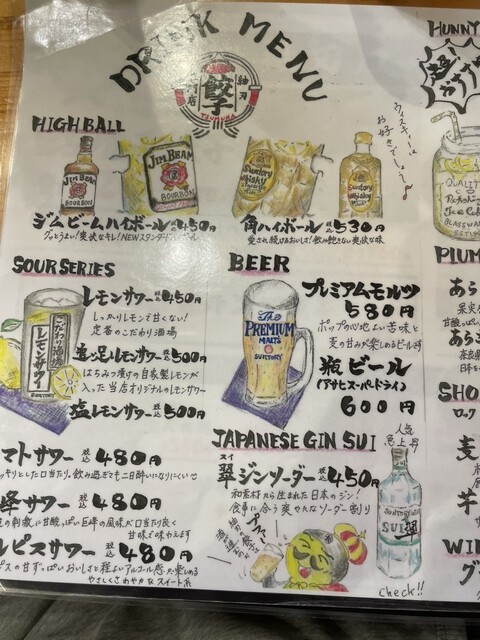 DRINK MENU
餃子
TSUMUHA
HIGHBALL
ウィスキーは
お好きでしょ〜♪
JIM BEAM
BOURBON
JIM BEAM
BOURBON
Suntory
Whisky
Suntory
Whisky
ジムビームハイボール 税込450円
グッとうまい!爽快なキレ!NEWスタンダードハイボール
角ハイボール 税込530円
愛され続けるおいしさ!飲み飽きない爽快な味
SOUR SERIES
こだわり酒場
レモンサワー
SUNTORY
レモンサワー 税込450円
しっかりレモンで甘くない!
定番のこだわり酒場
追っ足しレモンサワー 税込500円
はちみつ漬けの自家製レモンが
入った当店オリジナルのレモンサワー
塩レモンサワー 税込500円
マトサワー 税込480円
っきりとした口当たり。飲み過ぎても二日酔いになりにくい
峰サワー 税込480円
の刺激に甘酸っぱい巨峰の風味が口当り良く
甘味で味わえます
ルピスサワー 税込480円
ピスの甘ずっぱいおいしさと程よいアルコール感が楽しめる
やさしくさわやかなスイート系
BEER
The
PREMIUM
MALT'S
SUNTORY
プレミアムモルツ
580円
ポップの心地よい苦味と
麦の甘みが楽しめるビールです
瓶ビール
(アサヒスーパードライ)
600円
JAPANESE GIN SUI
人気
急上昇
スイ
翠ジンソーダー 税込450円
和素材から生まれた日本のジン!
食事に合う爽やかなソーダー割り
SUNTORY GIN
SUI
翠
check!!
HUNNY
超!
オススメ
QUALITY
GLASSWARE
PLUM
あら
果実
甘酸っぱ
あら
奈良
日本
SHO
ロック
麦
芋
WIN
グ